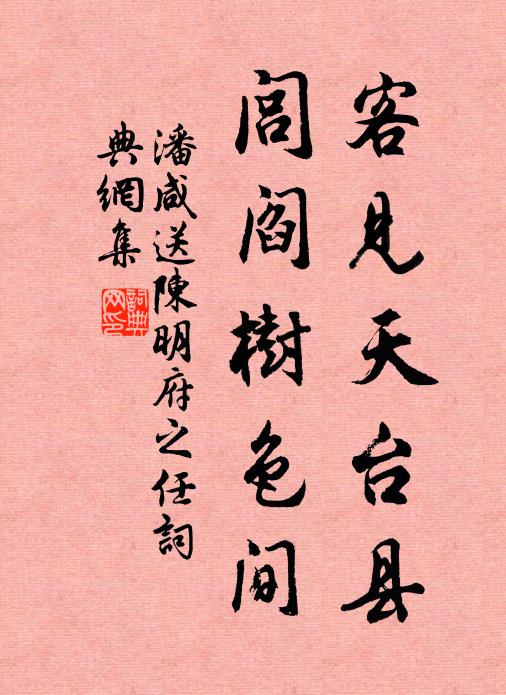 客見天台县
閭閻樹色間
潘咸送陳明府之任詞
典網集
詞典网印